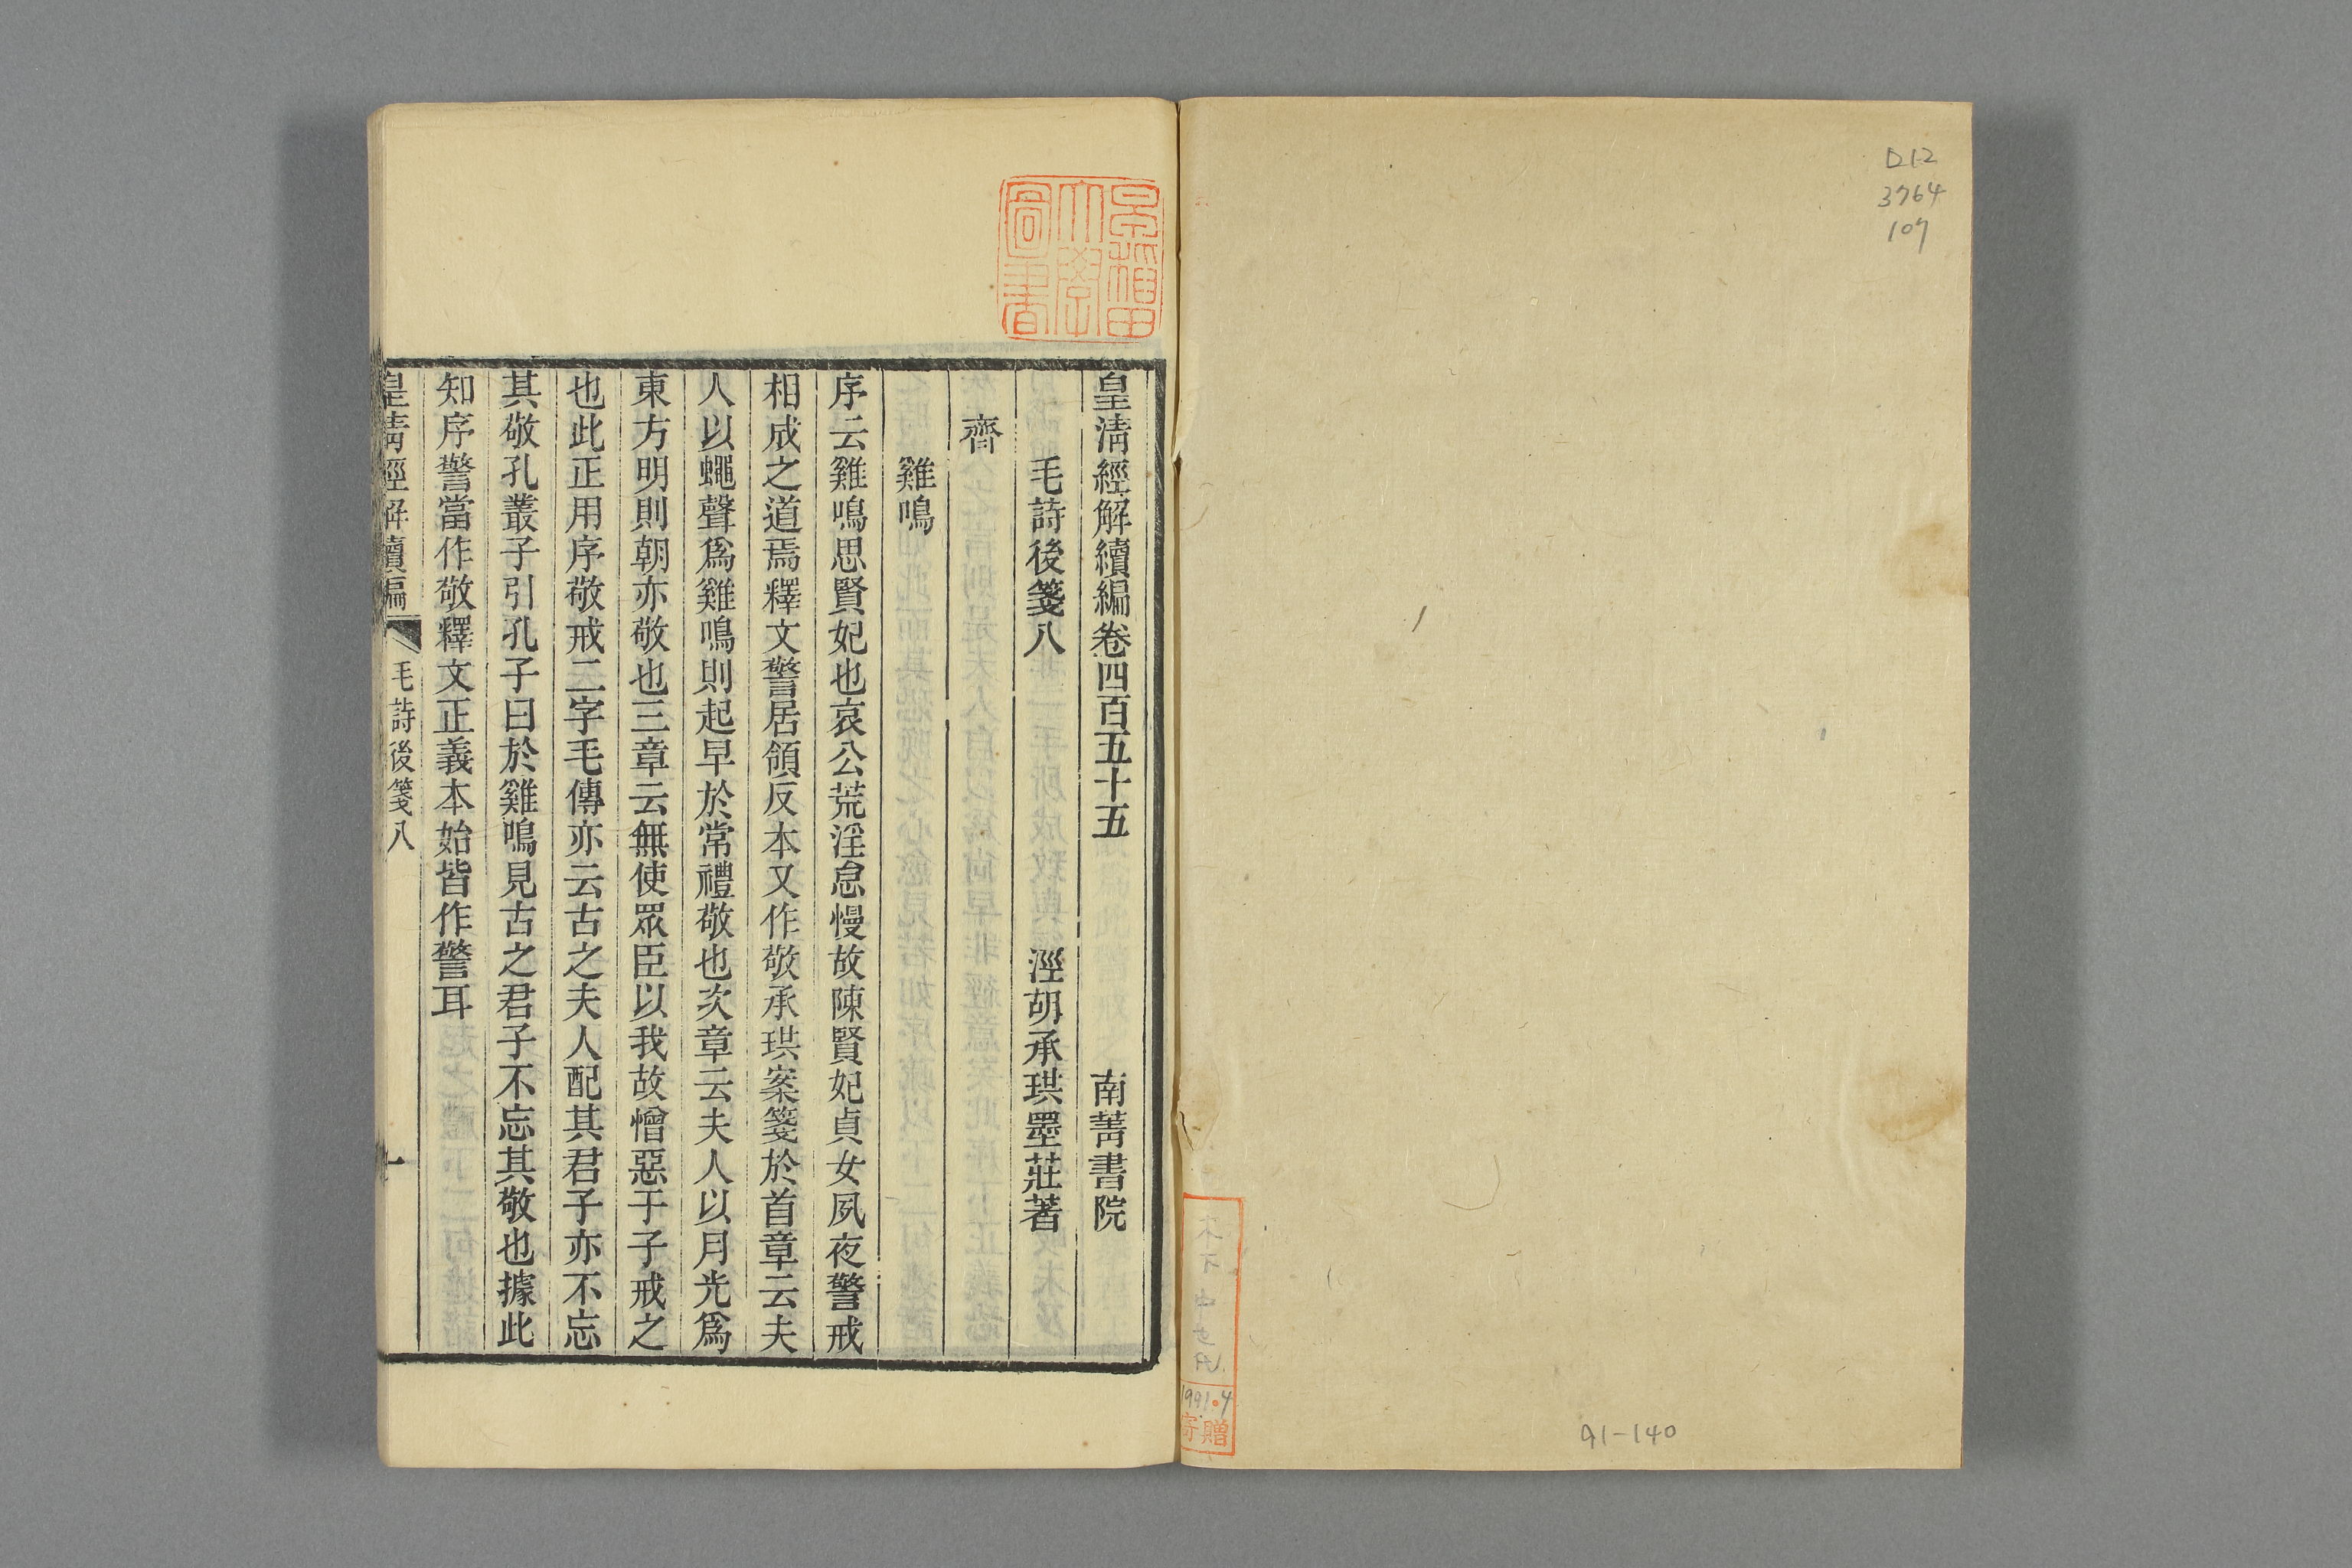 D12
3764
107
1991.4
寄贈
91-140
早稲田
大學
圖書
皇淸經解續編卷四百五十五 南菁書院
毛詩後箋八 涇胡承珙墨莊著
齊
雞鳴
序云雞鳴思賢妃也哀公荒淫怠慢故陳賢妃貞女夙夜警戒
相成之道焉釋文警居領反本又作敬承珙案箋於首章云夫
人以蠅聲爲雞鳴則起早於常禮敬也次章云夫人以月光爲
東方明則朝亦敬也三章云無使眾臣以我故憎惡于子戒之
也此正用序敬戒二字毛傳亦云古之夫人配其君子亦不忘
其敬孔叢子引孔子曰於雞鳴見古之君子不忘其敬也據此
知序警當作敬釋文正義本始皆作警耳
皇淸經解續編 毛詩後箋八 一